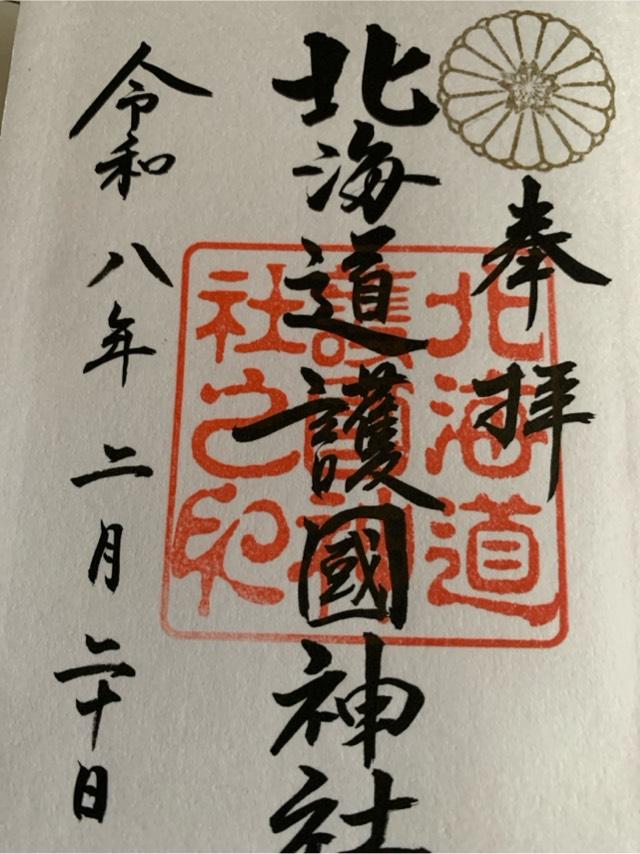 奉拝
北海道護國神社
北海道
護國神
社之印
令和八年二月二十日